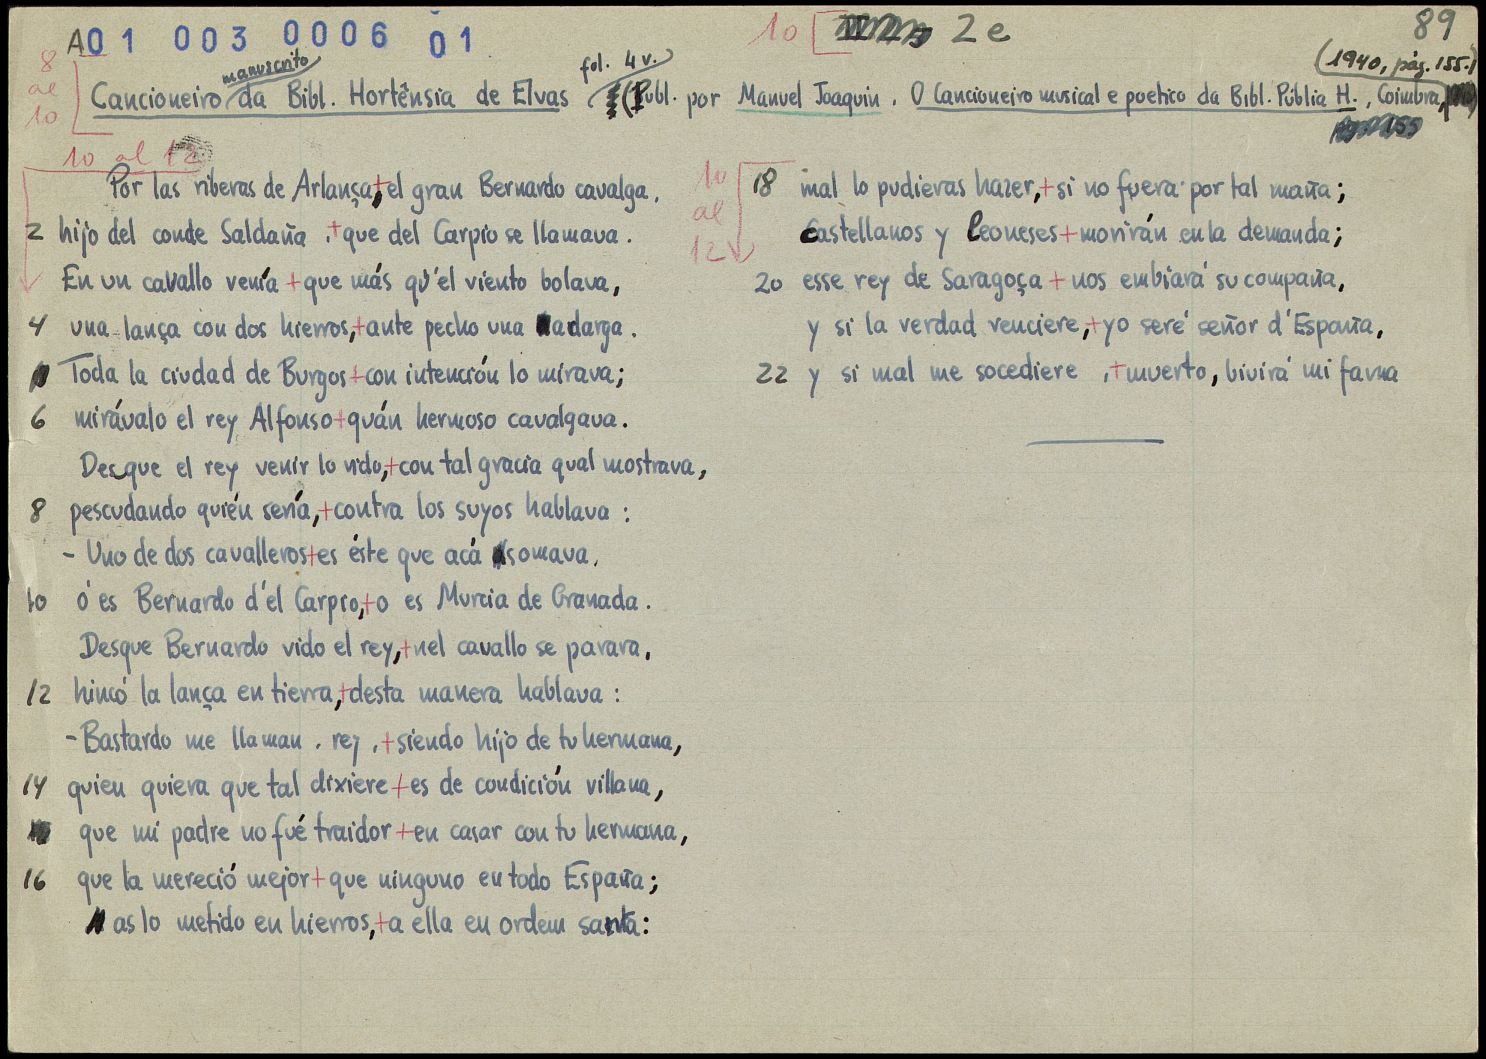 A01 003 0006 01
10 2e
89
8 al 10
manuscrito
fol. 4 v.
(1940, pág. 155.)
Cancioneiro da Bibl. Hortênsia de Elvas (Publ. por Manuel Joaquin. O Cancioneiro musical e poetico da Bibl. Públia H., Coimbra,
10 al 12
Por las riberas de Arlança,+el gran Bernardo cavalga,
2 hijo del conde Saldaña ,+que del Carpio se llamava.
En un cavallo venía +que más qu'el viento bolava,
4 una lança con dos hierros,+ante pecho una adarga.
Toda la ciudad de Burgos+con intención lo mirava;
6 mirávalo el rey Alfonso+quán hermoso cavalgava.
Desque el rey venir lo vido,+con tal gracia qual mostrava,
8 pescudando quién sería,+contra los suyos hablava :
- Uno de dos cavalleros+es éste que acá asomava,
10 ó es Bernardo d'el Carpio,+o es Murcia de Granada.
Desque Bernardo vido el rey,+nel cavallo se parara,
12 hincó la lança en tierra,+desta manera hablava :
-Bastardo me llaman, rey ,+siendo hijo de tu hermana,
14 quien quiera que tal dixiere+es de condición villana,
que mi padre no fué traidor+en casar con tu hermana,
16 que la mereció mejor+que ninguno en todo España;
as lo metido en hierros,+a ella en ordem santa:
10 al 12
18 mal lo pudieras hazer,+si no fuera por tal maña;
castellanos y leoneses+morirán en la demanda;
20 esse rey de Saragoça +nos embiará su compaña,
y si la verdad venciere,+yo seré señor d'España,
22 y si mal me socediere ,+muerto, bivirá mi fama